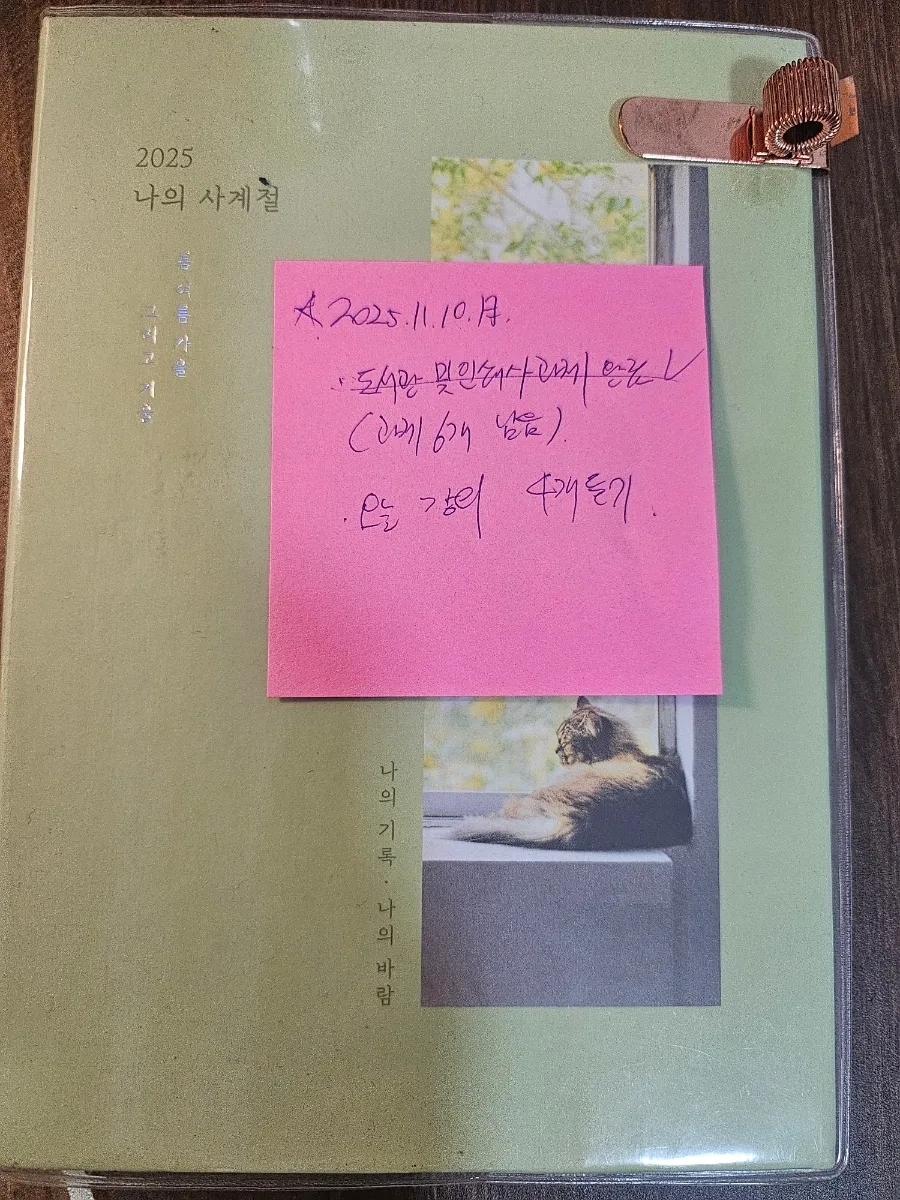 2025
나의 사계절
봄 여름 가을
그리고 겨울
☆ 2025.11.10.月.
· 도서관 및 인쇄사 과제 완료 √
(과제 6개 남음).
· 오늘 강의 4개 듣기.
나의 기록 · 나의 바람